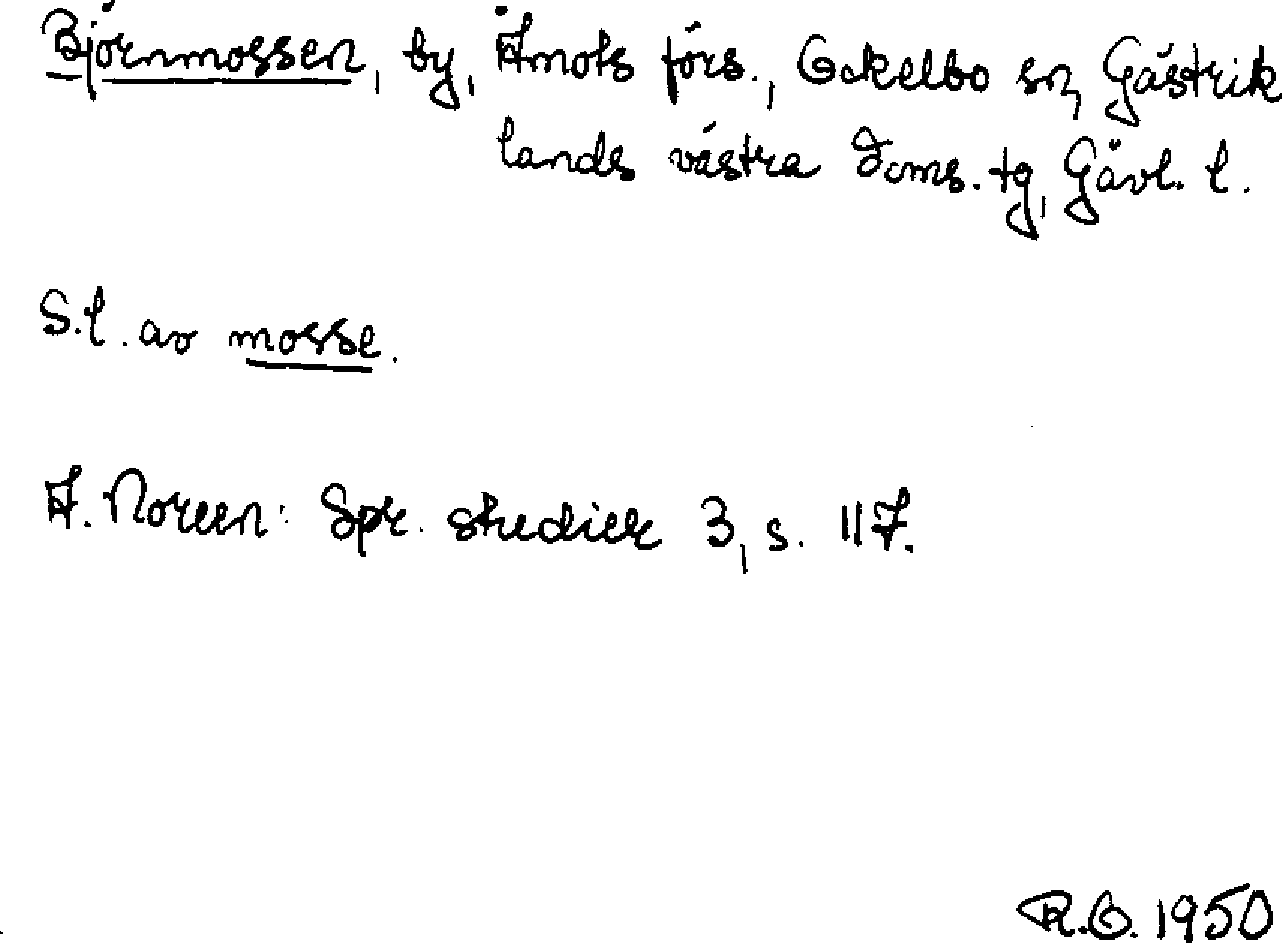 Björnmossen, by, Åmots förs., Ockelbo sn, Gästrik
lands västra Doms. tg, Gävl. l.
S.l. av mosse.
A. Noreen: Spr. studier 3, s. 117.
R.O. 1950